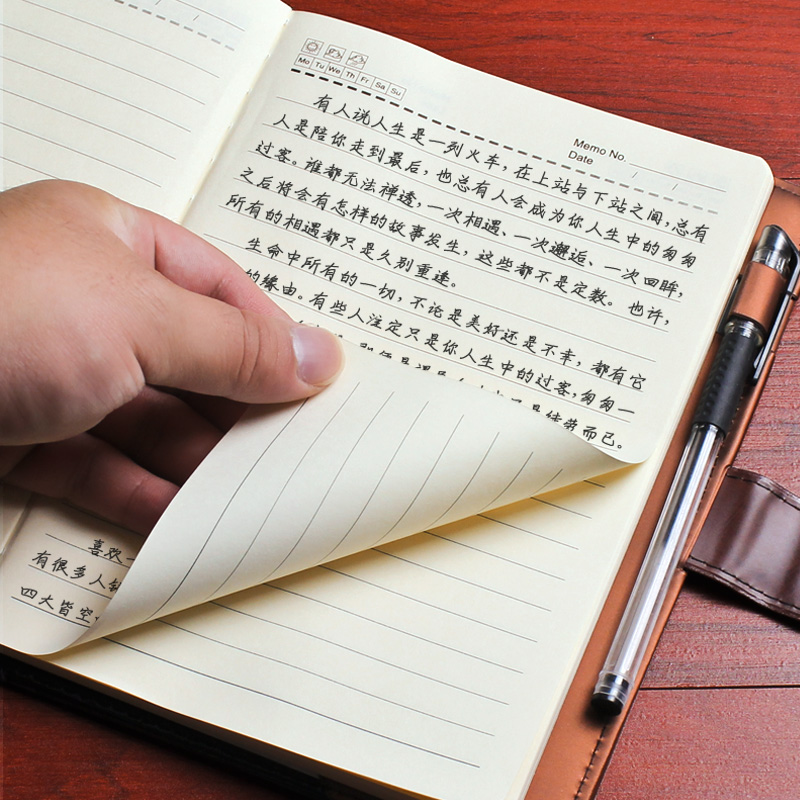 Mo Tu We Th Fr Sa Su
Memo No.
Date / /
有人说人生是一列火车，在上站与下站之间，总有
人是陪你走到最后，也总有人会成为你人生中的匆匆
过客。谁都无法禅透，一次相遇、一次邂逅、一次回眸，
之后将会有怎样的故事发生，这些都不是定数。也许，
所有的相遇都只是久别重逢。
生命中所有的一切，不论是美好还是不幸，都有它
的缘由。有些人注定只是你人生中的过客，匆匆一
而已。
喜欢一
有很多人
四大皆空